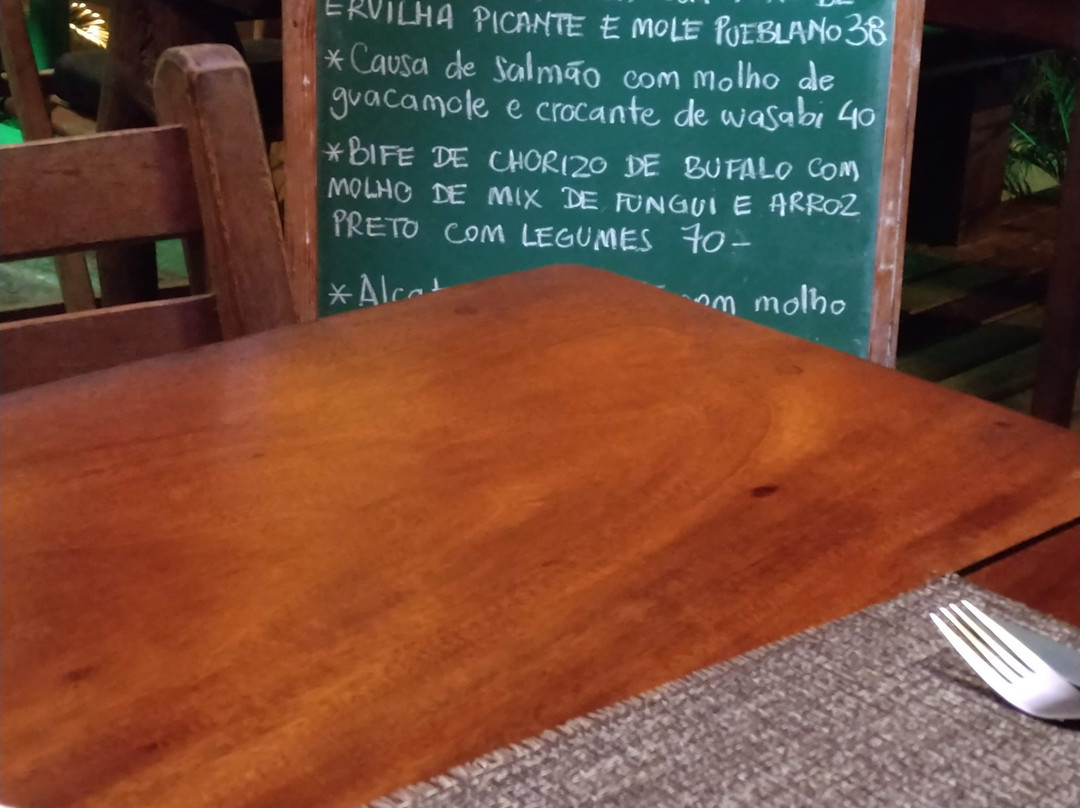 DE
ERVILHA PICANTE E MOLE PUEBLANO 38
*Causa de salmão com molho de
guacamole e crocante de wasabi 40
*BIFE DE CHORIZO DE BUFALO COM
MOLHO DE MIX DE FUNGUI E ARROZ
PRETO COM LEGUMES 70-
* molho